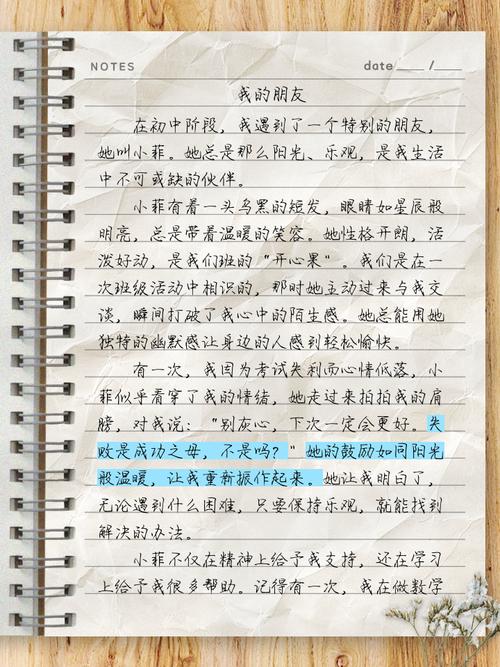 NOTES
date ____ / ____
我的朋友
在初中阶段，我遇到了一个特别的朋友，
她叫小菲。她总是那么阳光、乐观，是我生活
中不可或缺的伙伴。
小菲有着一头乌黑的短发，眼睛如星辰般
明亮，总是带着温暖的笑容。她性格开朗，活
泼好动，是我们班的“开心果”。我们是在一
次班级活动中相识的，那时她主动过来与我交
谈，瞬间打破了我心中的陌生感。她总能用她
独特的幽默感让身边的人感到轻松愉快。
有一次，我因为考试失利而心情低落，小
菲似乎看穿了我的情绪，她走过来拍拍我的肩
膀，对我说：“别灰心，下次一定会更好。失
败是成功之母，不是吗？”她的鼓励如同阳光
般温暖，让我重新振作起来。她让我明白了，
无论遇到什么困难，只要保持乐观，就能找到
解决的办法。
小菲不仅在精神上给予我支持，还在学习
上给予我很多帮助。记得有一次，我在做数学